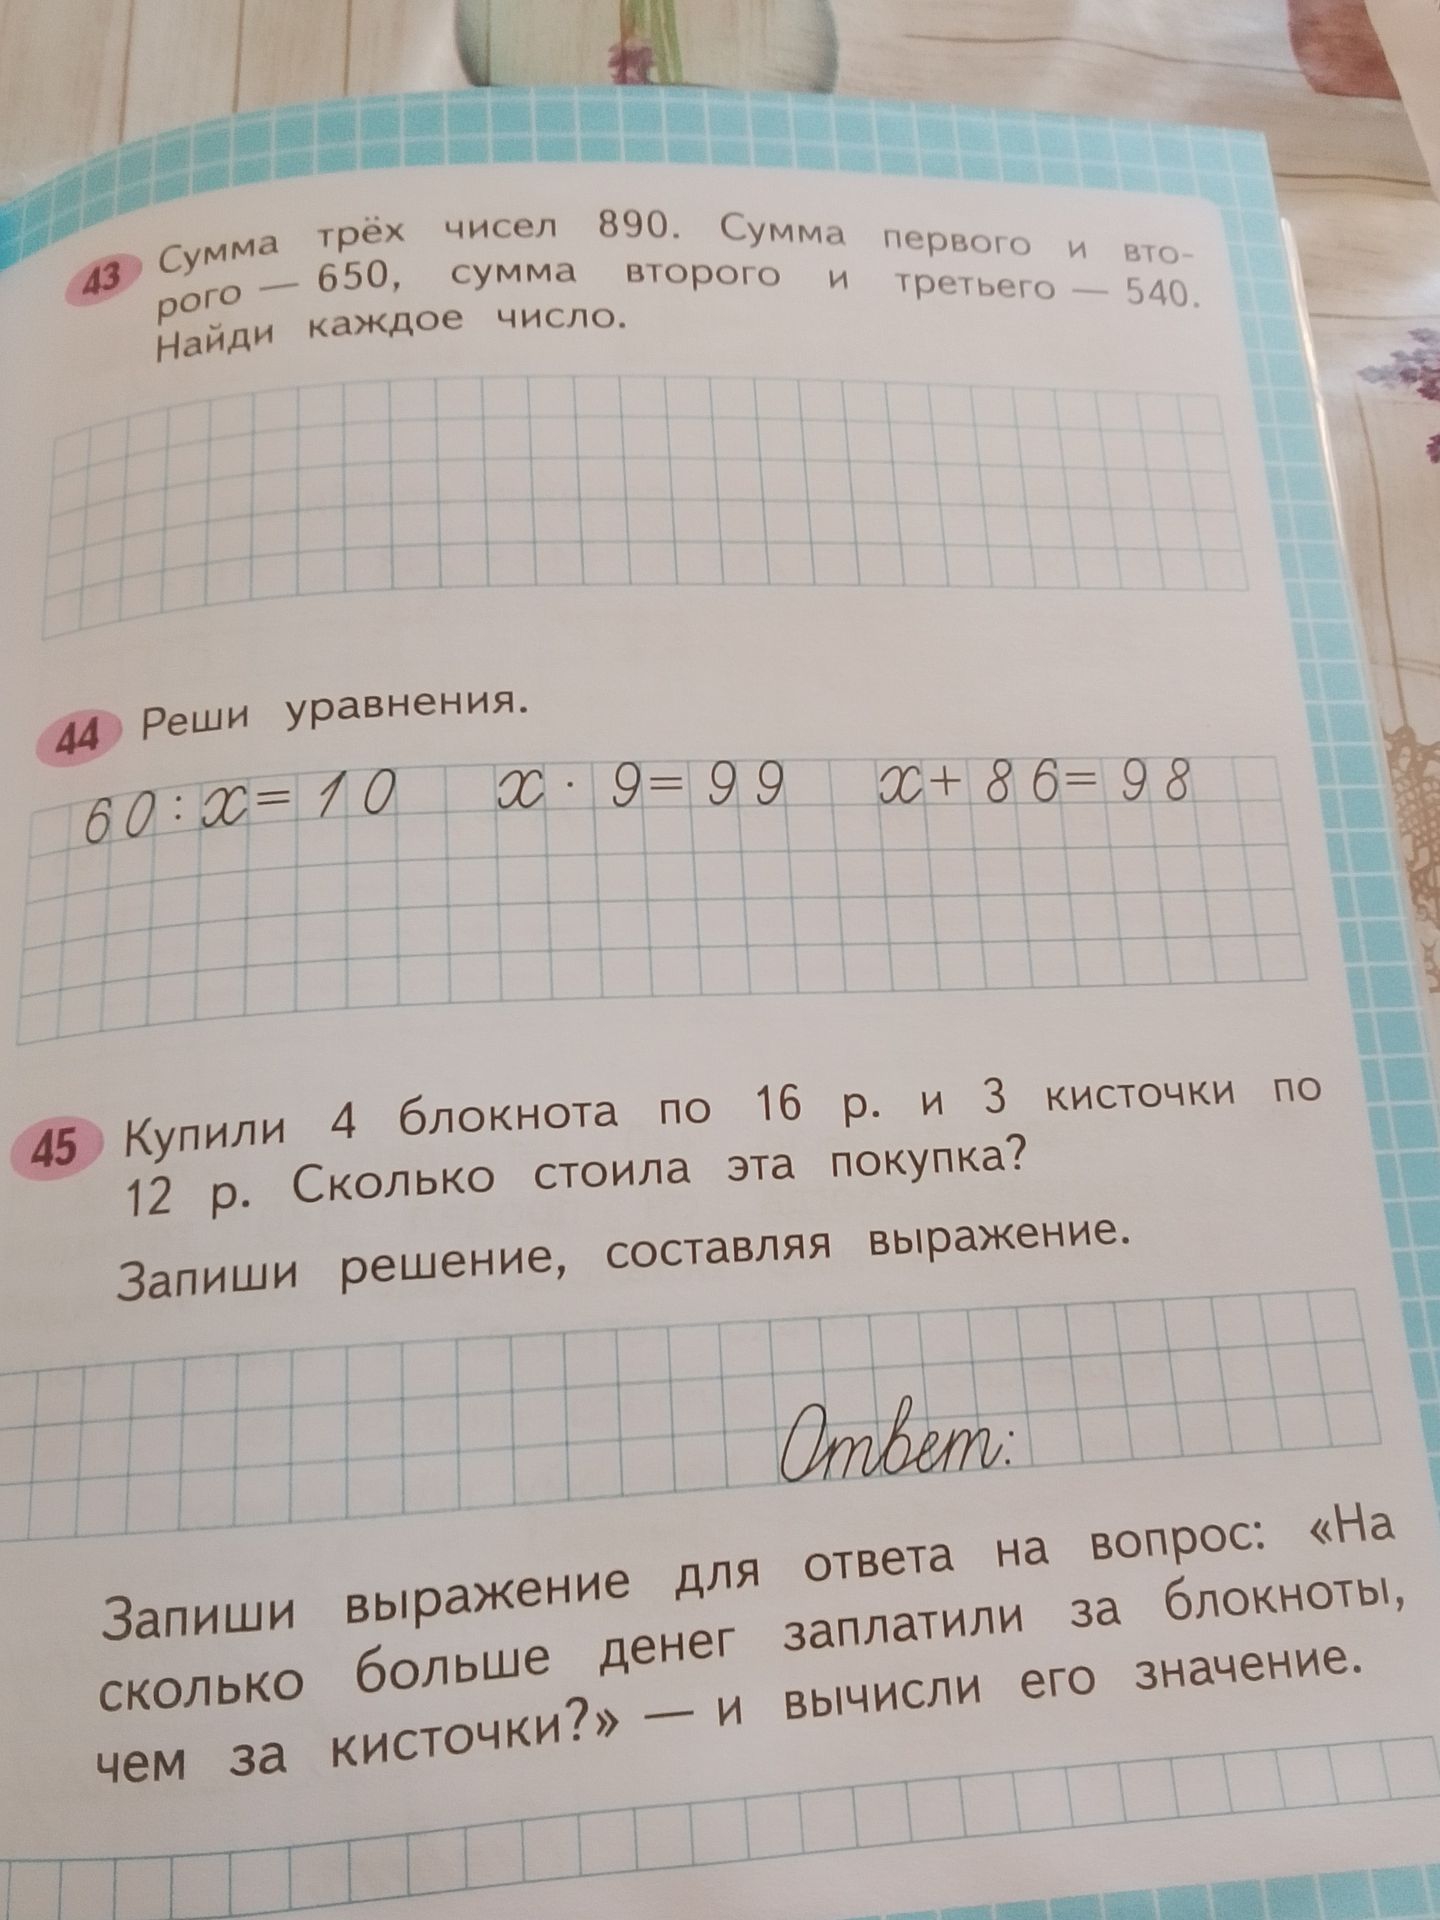 43 Сумма трёх чисел 890. Сумма первого и вто-
рого — 650, сумма второго и третьего — 540.
Найди каждое число.
44 Реши уравнения.
60:x=10 x·9=99 x+86=98
45 Купили 4 блокнота по 16 р. и 3 кисточки по
12 р. Сколько стоила эта покупка?
Запиши решение, составляя выражение.
Ответ:
Запиши выражение для ответа на вопрос: «На
сколько больше денег заплатили за блокноты,
чем за кисточки?» — и вычисли его значение.